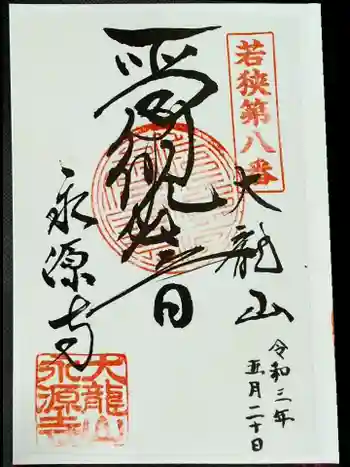 若狭第八番
大龍山
観世音
永源寺
令和三年
五月二十日
大龍山
永源寺